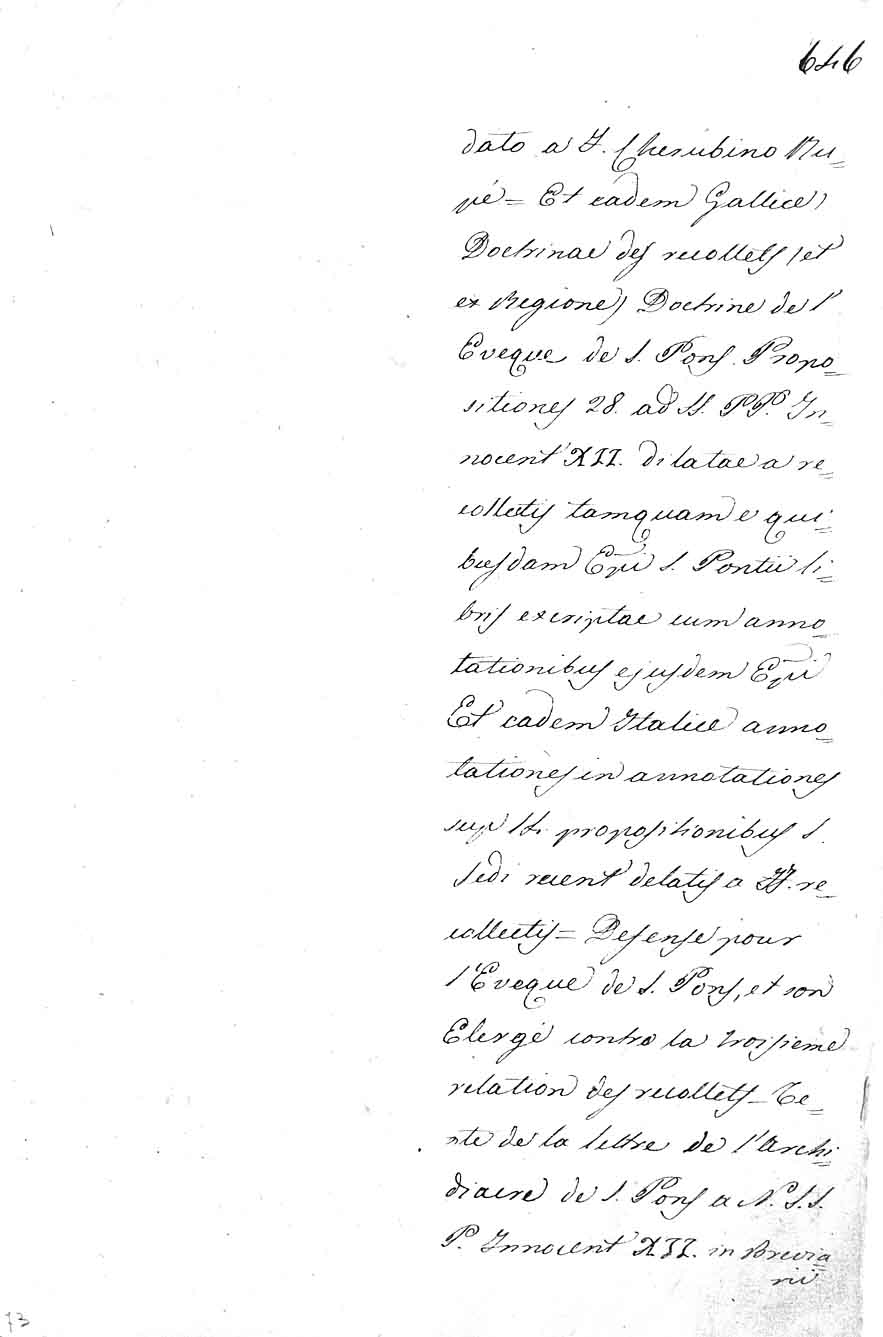 646
dato a F. Cherubino Ru=
pé = Et eadem Gallice)
Doctrinae des recollets (et
ex Regione) Doctrine de l'
Eveque de S. Pons. Propo=
sitiones 28. ad SS. PP. In=
nocent XII. dilatae a re=
collectis tamquam e qui=
busdam Epi S. Pontii li=
bris excriptae cum anno=
tationibus ejusdem Epi
Et eadem Italice anno=
tationes in annotationes
sup 14. propositionibus S.
Sedi recent delatis a FF. re=
collectis = Defense pour
l'Eveque de S. Pons, et son
Clergé contro la troisieme
relation des recollets = Te=
xte de la lettre de l'Archi=
diacre de S. Pons a N. S. S.
P. Innocent XII. in Brevia=
rii
73